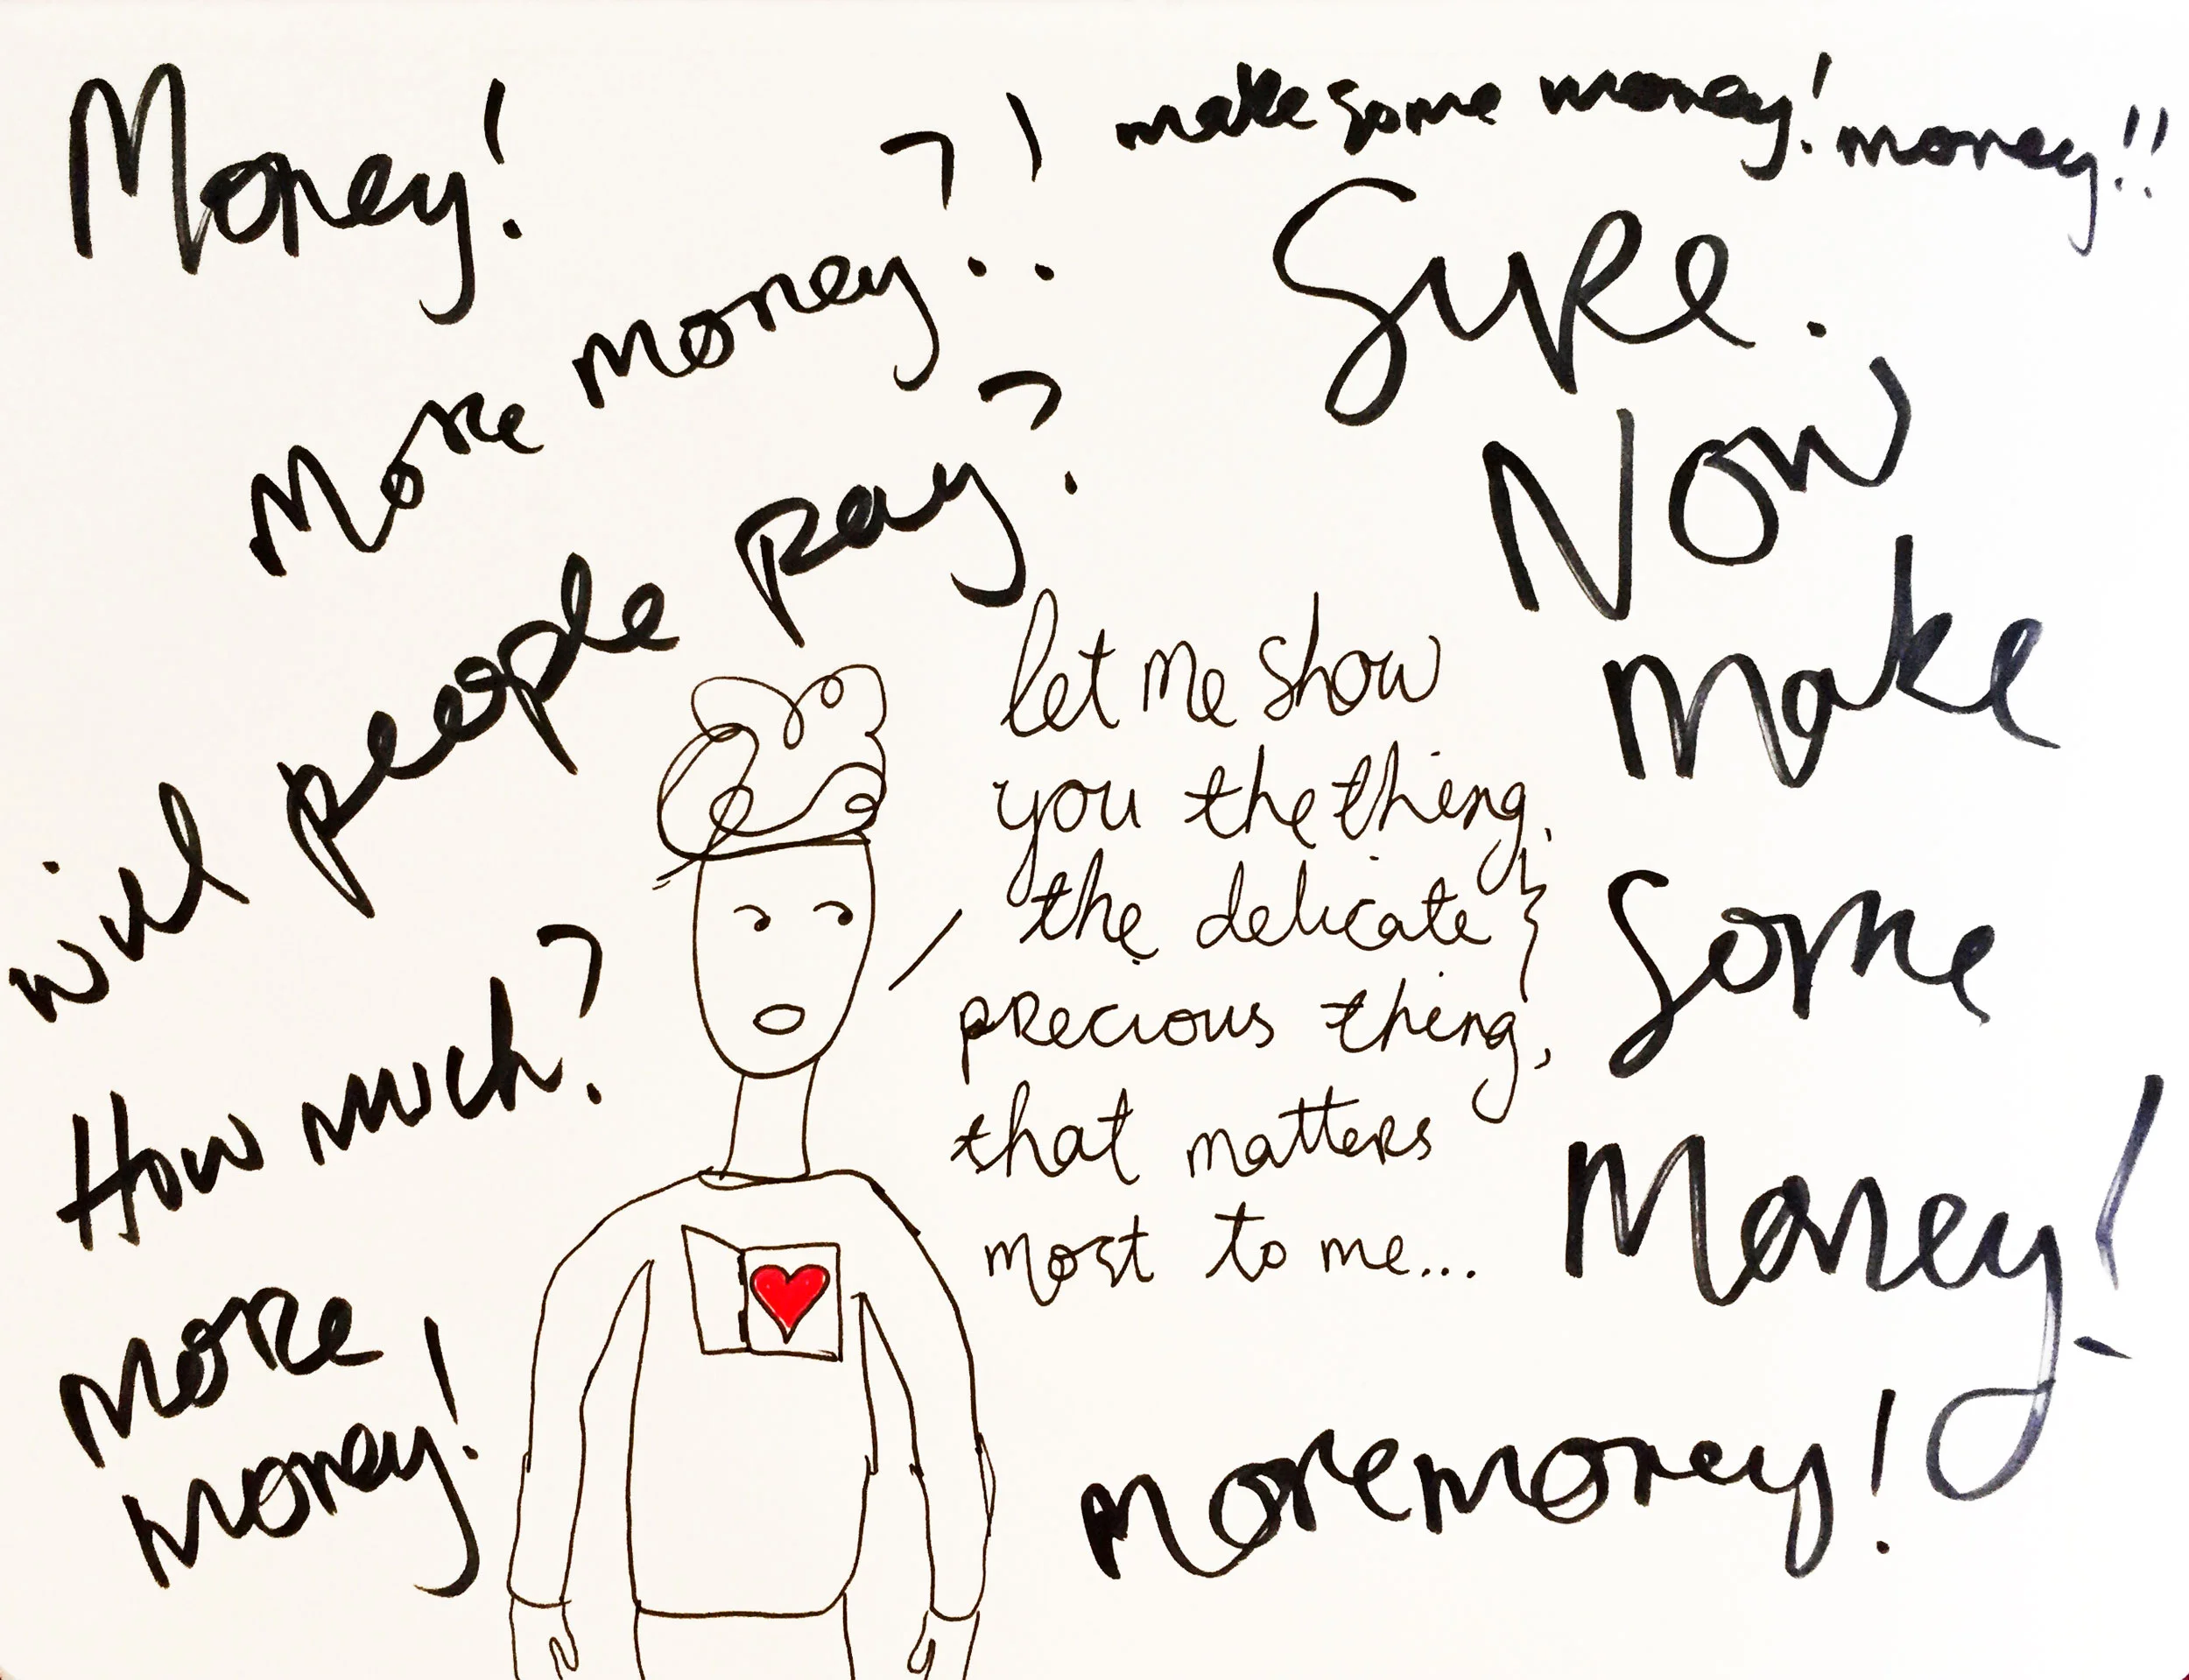 Money!
More money?!
will people pay?
How much?
More
money!
let me show
you the thing,
the delicate
precious thing,
that matters
most to me...
make some money! money!!
Sure.
Now
make
some
money!
more money!